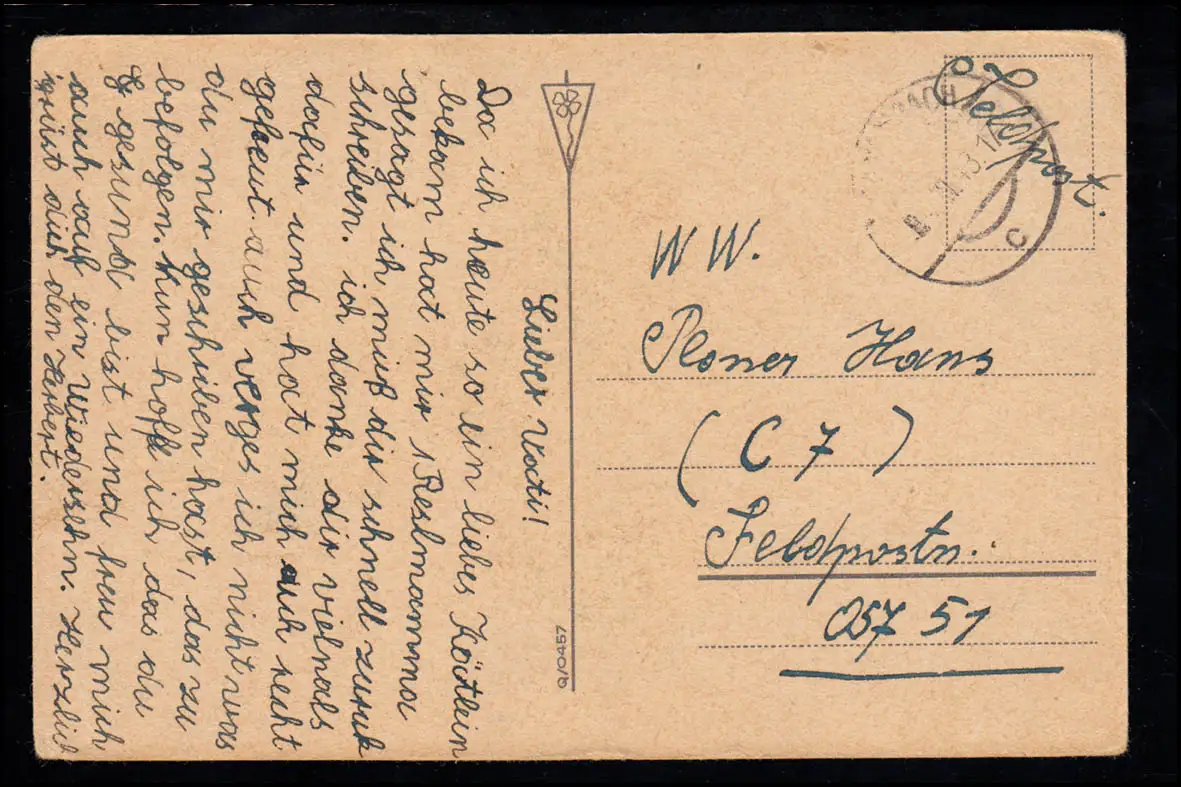 Lieber Vati!
Da ich heute so ein liebes Kärtlein
bekam hat mir Reslmamma
gesagt ich muß dir schnell zurük
schreiben. ich danke dir vielmals
dafür und hat mich auch recht
gefreut auch verges ich nicht was
du mir geschriben hast, das zu
befolgen. Nun hoffe ich das du
gesund bist und freu mich
auch auf ein Wiedersehn. Herzlich
grüst dich den Herbert.
Q/0457
Feldpost.
C
W W.
Ploner Hans
(C 7)
Feldpostn.:
05751